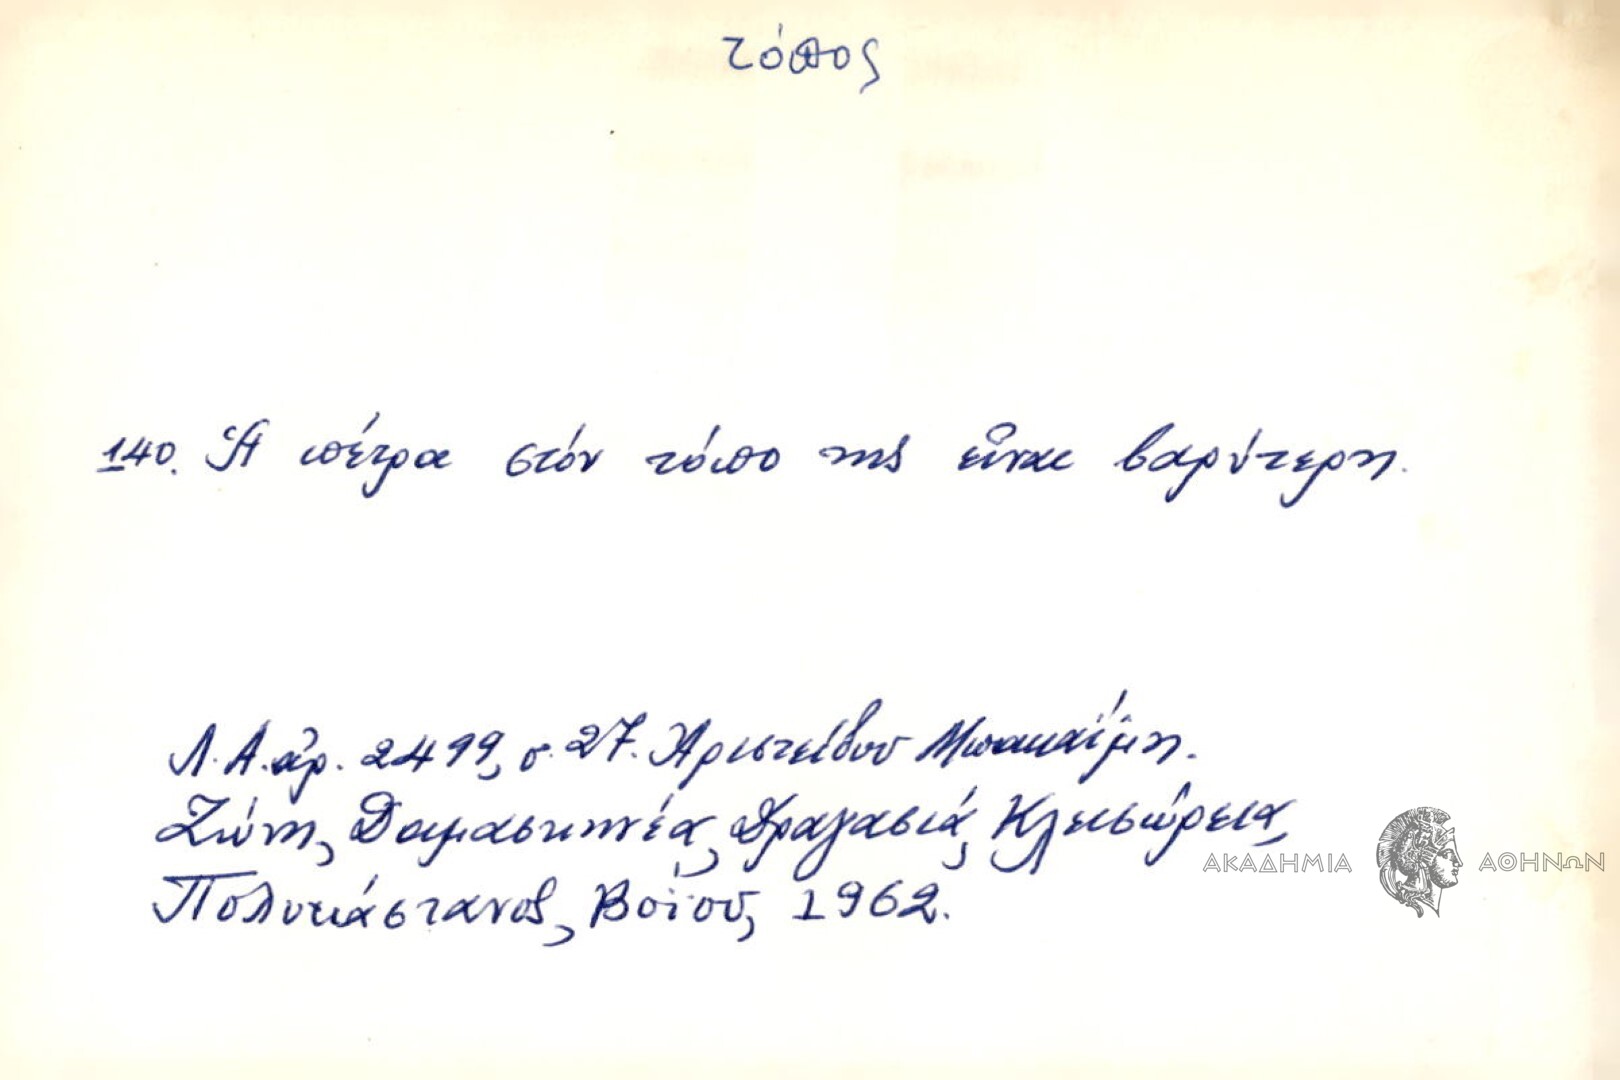 τόπος
140. Ἡ πέτρα στόν τόπο της εἶναι βαρύτερη.
Λ.Α. ἀρ. 2499, σ. 27. Ἀριστείδου Μπακαΐμη.
Ζώνη, Δαμασκηνέα, Δραγασιά, Κλεισώρεια,
Πολυκάστανος, Βοΐου, 1962.
ΑΚΑΔΗΜΙΑ ΑΘΗΝΩΝ